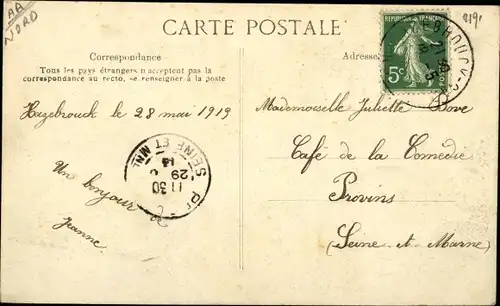 AA
NORD
CARTE POSTALE
8191
REPUBLIQUE FRANÇAISE
5c
Correspondance
Tous les pays étrangers n'acceptent pas la
correspondance au recto, se renseigner à la poste
Adresse
Hazebrouck le 28 mai 1919
Mademoiselle Juliette Bove
Café de la Comédie
Provins
(Seine et Marne)
SEINE ET MNE
11 30
29
Un bonjour
Jeanne